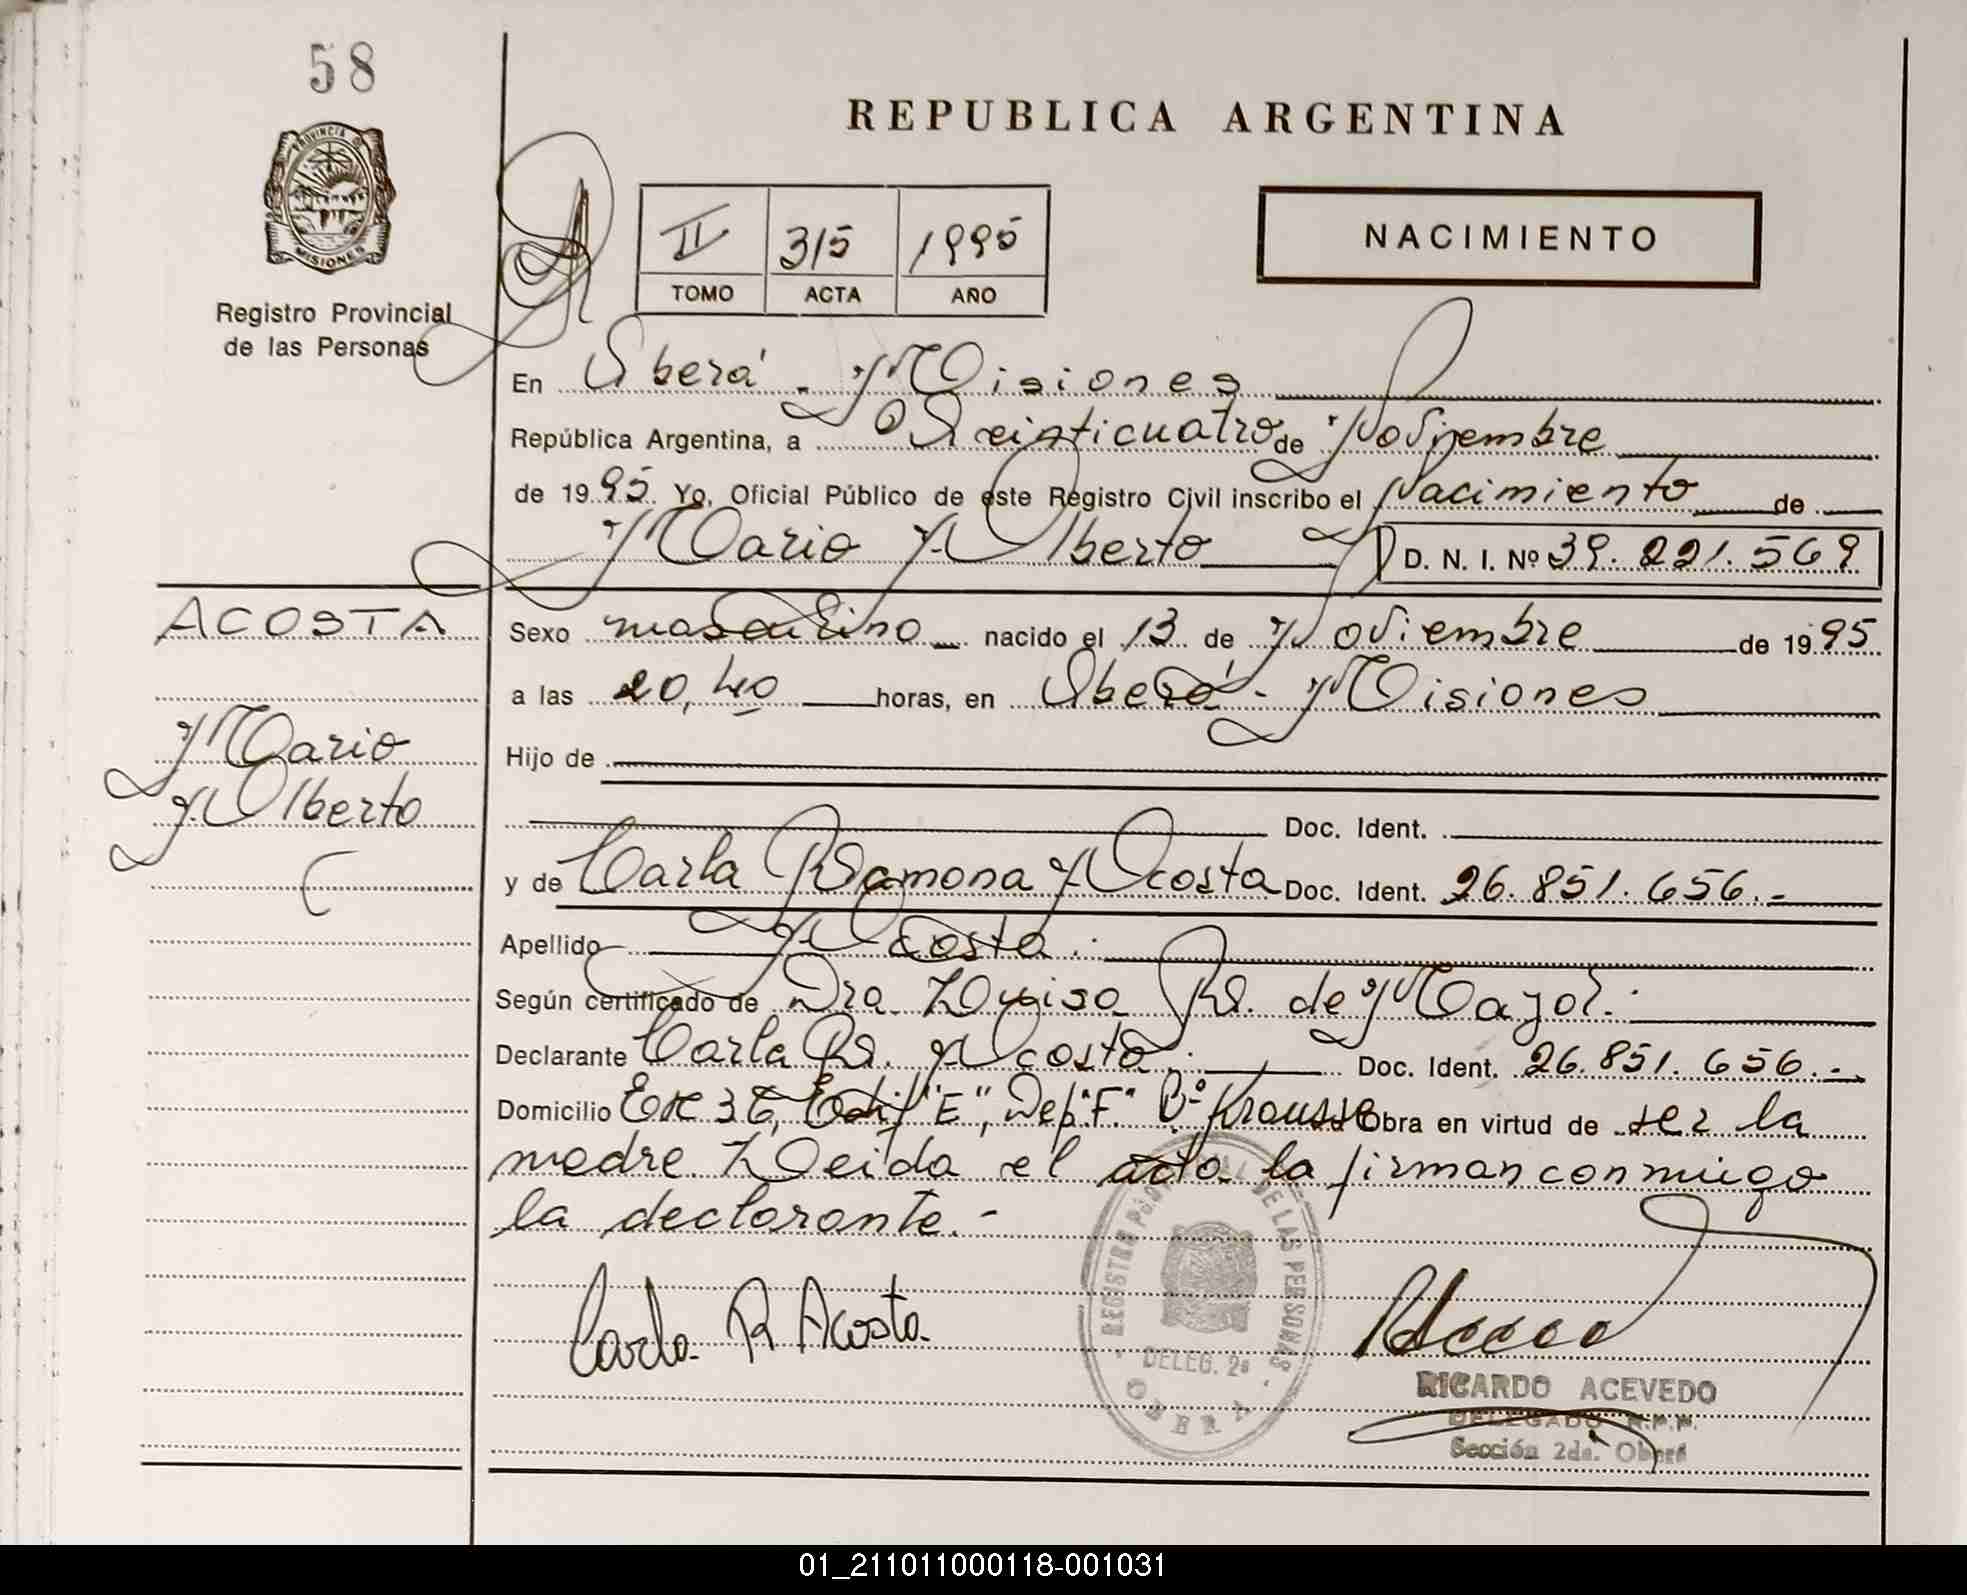 58
REPUBLICA ARGENTINA
PROVINCIA DE
MISIONES
Registro Provincial
de las Personas
II 315 1995
TOMO ACTA AÑO
NACIMIENTO
En Oberá - Misiones
República Argentina, a Veinticuatro de Noviembre
de 1995 Yo, Oficial Público de este Registro Civil inscribo el Nacimiento de
Mario Alberto D. N. I. Nº 39.221.569
ACOSTA
Mario
Alberto
Sexo masculino nacido el 13 de Noviembre de 1995
a las 20,40 horas, en Oberá - Misiones
Hijo de
Doc. Ident.
y de Carla Ramona Acosta Doc. Ident. 26.851.656.-
Apellido Acosta.
Según certificado de Dra. Luisa R. de Mayol.
Declarante Carla R. Acosta. Doc. Ident. 26.851.656.-
Domicilio Esc 36, Edif "E", Dep. "F" Bº Krausse Obra en virtud de ser la
madre. Leída el acta la firman conmigo
la declarante.-
Carla R Acosta.
REGISTRO PROVINCIAL DE LAS PERSONAS
DELEG. 2ª
OBERA
RICARDO ACEVEDO
DELEGADO R.P.P.
Sección 2da. Oberá
01_211011000118-001031